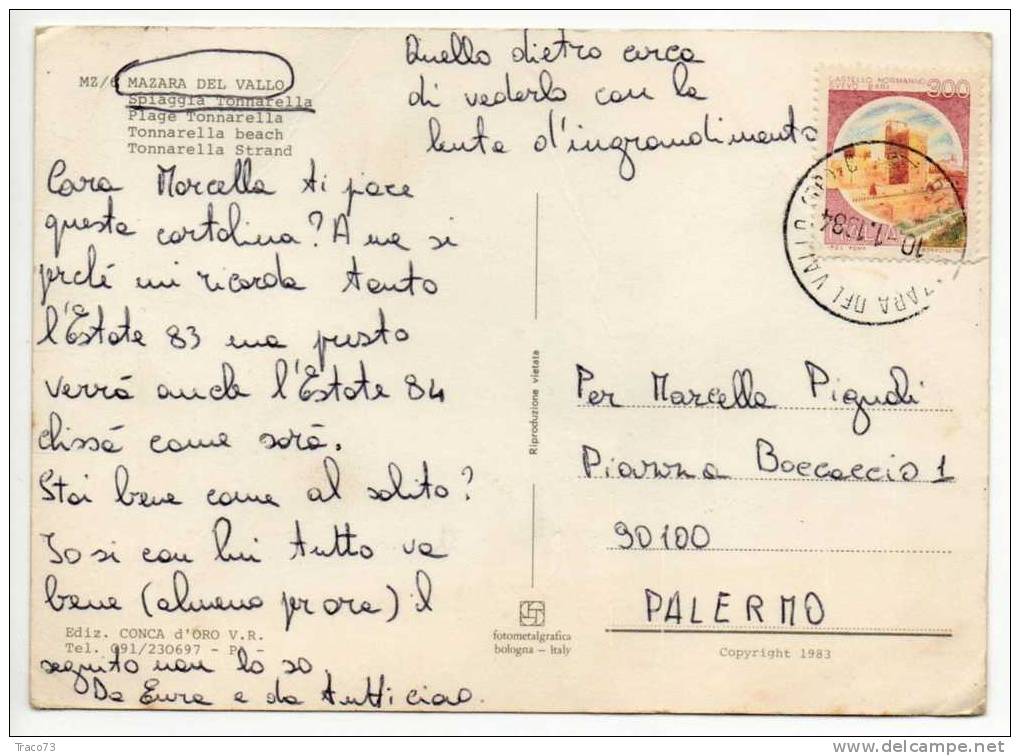 MZ/6 MAZARA DEL VALLO
Spiaggia Tonnarella
Plage Tonnarella
Tonnarella beach
Tonnarella Strand
Quello dietro cerca
di vederlo con la
lente d'ingrandimento
CASTELLO NORMANNO
SVEVO BARI
300
10.1.1984
MAZARA DEL VALLO
Cara Marcella ti piace
questa cartolina? A me si
perché mi ricorda tanto
l'Estate 83 ma presto
verrà anche l'Estate 84
chissà come sarà.
Stai bene come al solito?
Io si con lui tutto va
bene (almeno per ora) il
seguito non lo so.
Da Enza e da tutti ciao
Ediz. CONCA d'ORO V.R.
Tel. 091/230697 - P -
Riproduzione vietata
fotometalgrafica
bologna - Italy
Per Marcella Pignoli
Piazza Boccaccio 1
90100
PALERMO
Copyright 1983
Traco73
www.delcampe.net